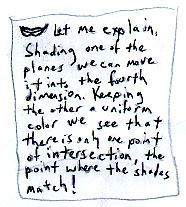 Let me explain.
Shading one of the
planes we can move
it into the fourth
dimension. Keeping
the other a uniform
color we see that
there is only one point
of intersection, the
point where the shades
match!